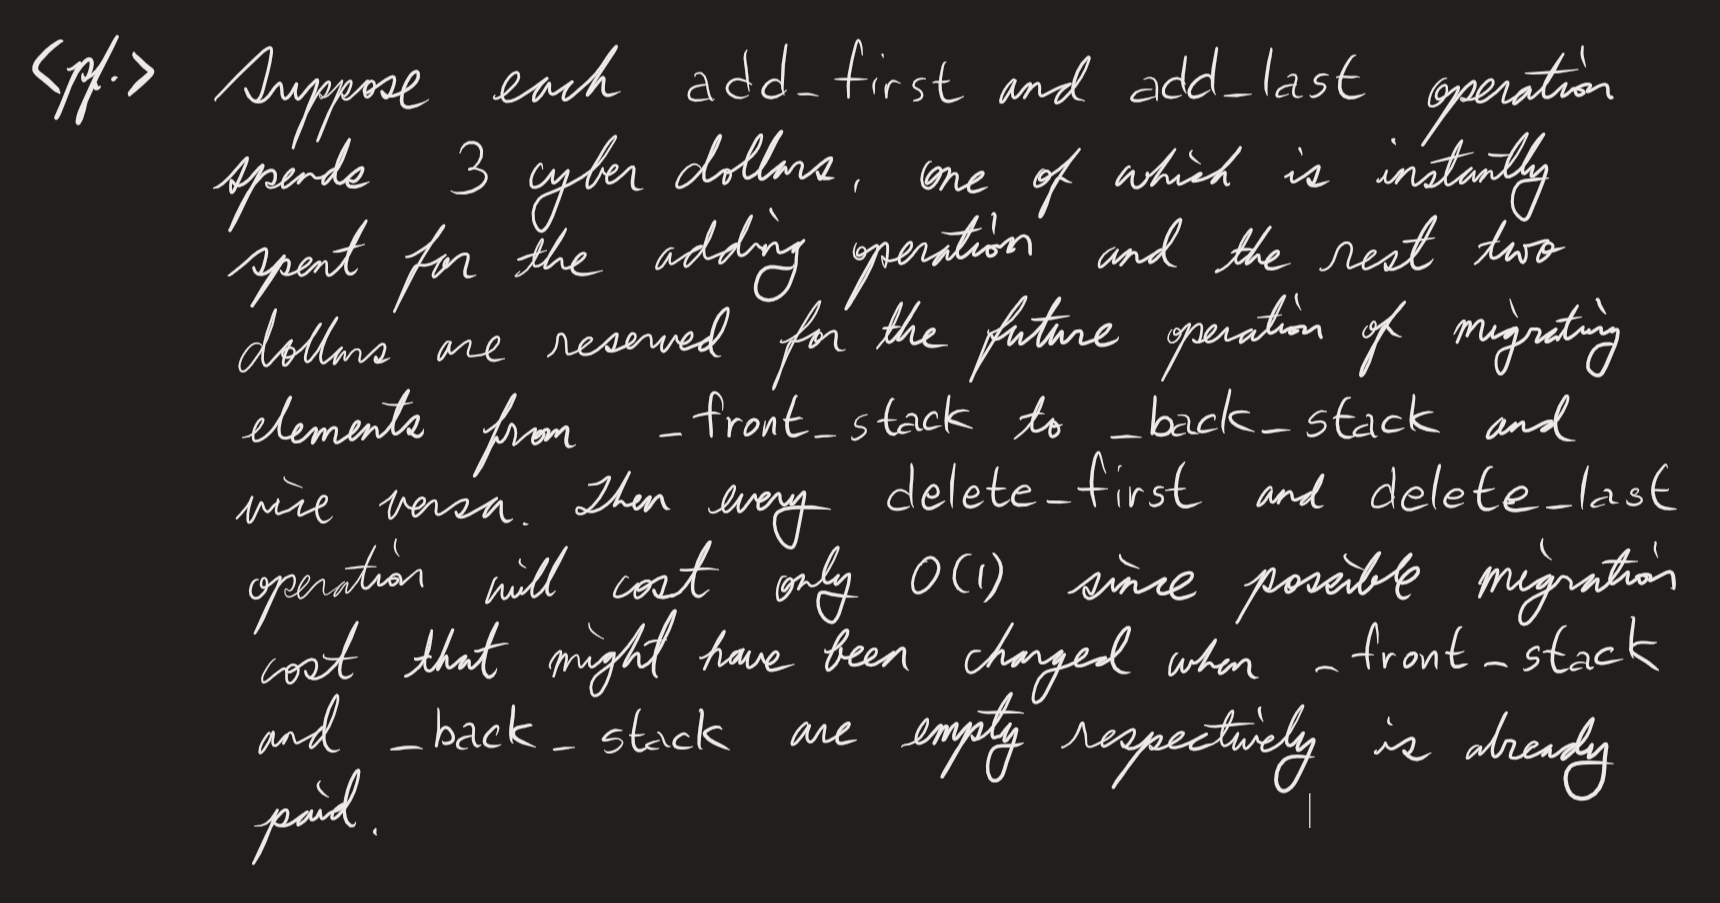 <pf.> Suppose each add_first and add_last operation
spends 3 cyber dollars, one of which is instantly
spent for the adding operation and the rest two
dollars are reserved for the future operation of migrating
elements from _front_stack to _back_stack and
vice versa. Then every delete_first and delete_last
operation will cost only O(1) since possible migration
cost that might have been charged when _front_stack
and _back_stack are empty respectively is already
paid.